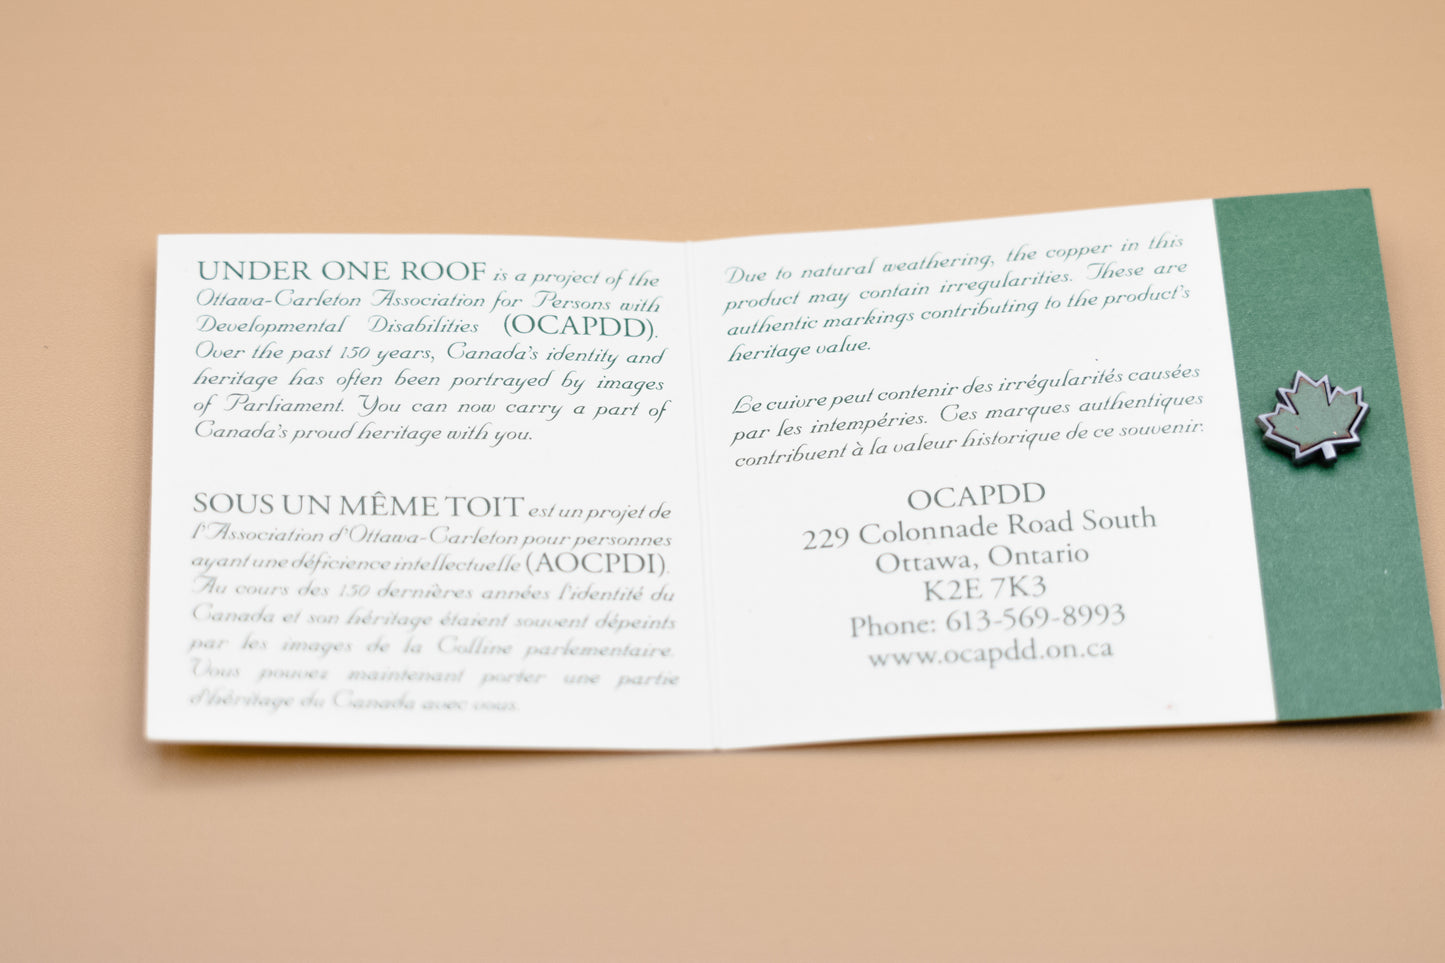 UNDER ONE ROOF is a project of the
Ottawa-Carleton Association for Persons with
Developmental Disabilities (OCAPDD).
Over the past 150 years, Canada's identity and
heritage has often been portrayed by images
of Parliament. You can now carry a part of
Canada's proud heritage with you.
SOUS UN MÊME TOIT est un projet de
l'Association d'Ottawa-Carleton pour personnes
ayant une déficience intellectuelle (AOCPDI).
Au cours des 150 dernières années l'identité du
Canada et son héritage étaient souvent dépeints
par les images de la Colline parlementaire.
Vous pouvez maintenant porter une partie
d'héritage du Canada avec vous.
Due to natural weathering, the copper in this
product may contain irregularities. These are
authentic markings contributing to the product's
heritage value.
Le cuivre peut contenir des irrégularités causées
par les intempéries. Ces marques authentiques
contribuent à la valeur historique de ce souvenir.
OCAPDD
229 Colonnade Road South
Ottawa, Ontario
K2E 7K3
Phone: 613-569-8993
www.ocapdd.on.ca